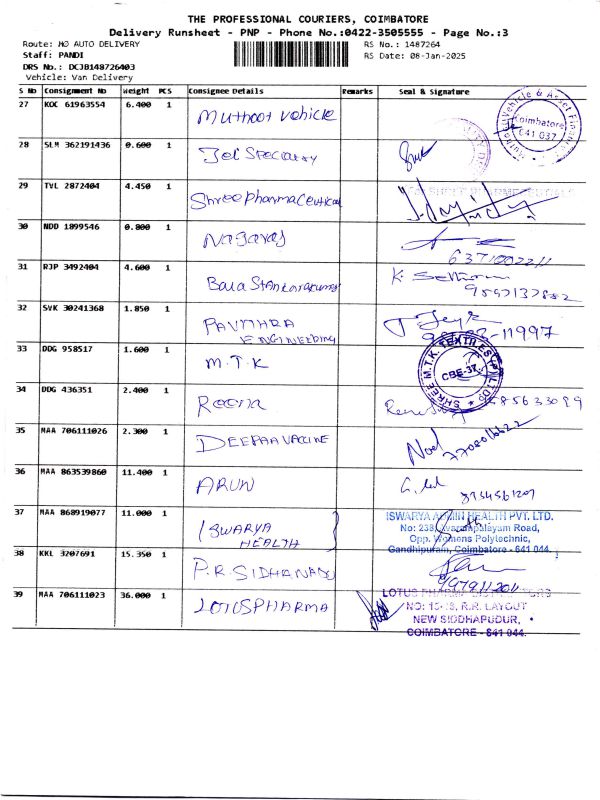 THE PROFESSIONAL COURIERS, COIMBATORE
Delivery Runsheet - PNP - Phone No.:0422-3505555 - Page No.:3
Route: MO AUTO DELIVERY
RS No.: 1487264
Staff: PANDI
RS Date: 08-Jan-2025
DRS No.: DCJB148726403
Vehicle: Van Delivery
S No Consignment No Weight PCS Consignee Details Remarks Seal & Signature
27 KOC 61963554 6.400 1 Muthoot vehicle
Coimbatore 641 037
28 SLM 362191436 0.600 1 Jet Specialty
29 TVL 2872404 4.450 1 Shree Pharmaceutical
30 NDD 1899546 0.800 1 Nagaraj
6371002211
31 RJP 3492404 4.600 1 Bala
32 SVK 30241368 1.850 1 PAVITHRA ENGINEERING
11997
33 DDG 958517 1.600 1 M.T.K
SHREE M.T.K. TEXTILES (P) LTD
CBE-37.
34 DDG 436351 2.400 1 Reena
35 MAA 706111026 2.300 1 DEEPAA VACCINE
Noel
36 MAA 863539860 11.400 1 ARUN
37 MAA 868919077 11.000 1 ISWARYA HEALTH
ISWARYA ADMIN HEALTH PVT. LTD.
No: 239, Avarampalayam Road,
Opp. Womens Polytechnic,
Gandhipuram, Coimbatore - 641 044.
38 KKL 3207691 15.350 1 P.R. SIDHANADU
39 MAA 706111023 36.000 1 LOTUS PHARMA
LOTUS
NO: 15-18, R.R. LAYOUT
NEW SIDDHAPUDUR,
COIMBATORE - 641 044.